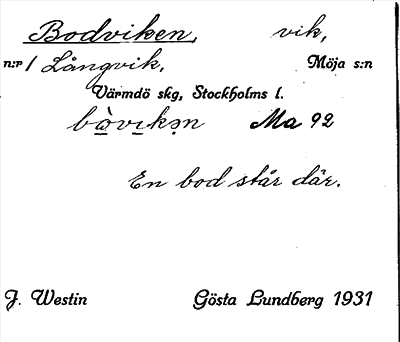 Bodviken, vik,
n:r 1 Långvik, Möja s:n
Värmdö skg, Stockholms l.
bòvikən Ma 92
En bod står där.
J. Westin Gösta Lundberg 1931